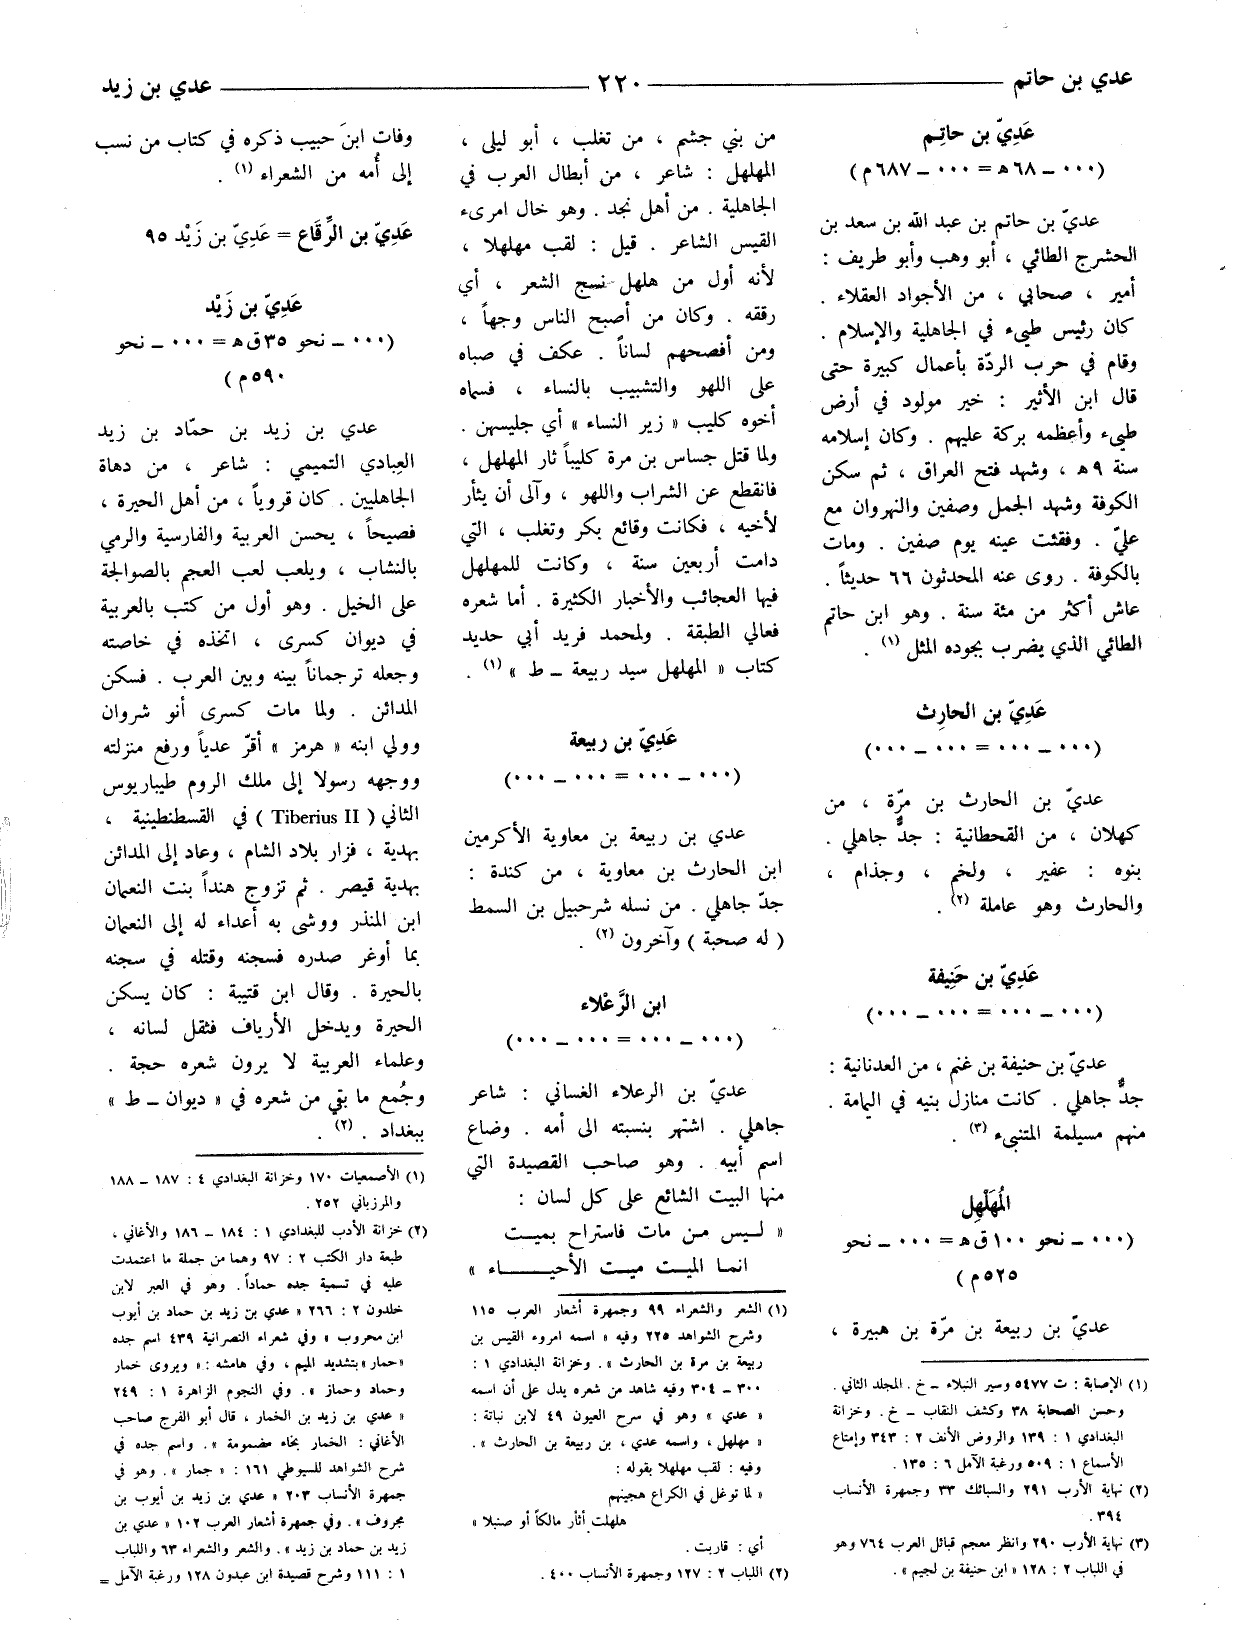 عدي بن حاتم ــــــ ٢٢٠ ــــــ عدي بن زيد
عَدِيّ بن حاتِم
(٠٠٠ ــ ٦٨ هـ = ٠٠٠ ــ ٦٨٧ م)
عديّ بن حاتم بن عبد الله بن سعد بن
الحشرج الطائي ، أبو وهب وأبو طريف :
أمير ، صحابي ، من الأجواد العقلاء .
كان رئيس طيىء في الجاهلية والإسلام .
وقام في حرب الردّة بأعمال كبيرة حتى
قال ابن الأثير : خير مولود في أرض
طيىء وأعظمه بركة عليهم . وكان إسلامه
سنة ٩ هـ ، وشهد فتح العراق ، ثم سكن
الكوفة وشهد الجمل وصفين والنهروان مع
عليّ . وفقئت عينه يوم صفين . ومات
بالكوفة . روى عنه المحدثون ٦٦ حديثاً .
عاش أكثر من مئة سنة . وهو ابن حاتم
الطائي الذي يضرب بجوده المثل (١) .
عَدِيّ بن الحارِث
(٠٠٠ ــ ٠٠٠ = ٠٠٠ ــ ٠٠٠)
عديّ بن الحارث بن مرّة ، من
كهلان ، من القحطانية : جدٌّ جاهلي .
بنوه : عفير ، ولخم ، وجذام ،
والحارث وهو عاملة (٢) .
عَدِيّ بن حَنِيفة
(٠٠٠ ــ ٠٠٠ = ٠٠٠ ــ ٠٠٠)
عديّ بن حنيفة بن غنم ، من العدنانية :
جدٌّ جاهلي . كانت منازل بنيه في اليمامة .
منهم مسيلمة المتنبىء (٣) .
المُهَلْهِل
(٠٠٠ ــ نحو ١٠٠ ق هـ = ٠٠٠ ــ نحو
٥٢٥ م)
عديّ بن ربيعة بن مرّة بن هبيرة ،
(١) الإصابة : ت ٥٤٧٧ وسير النبلاء ــ خ . المجلد الثاني .
وحسن الصحابة ٣٨ وكشف النقاب ــ خ . وخزانة
البغدادي ١ : ١٣٩ والروض الأنف ٢ : ٣٤٣ وإمتاع
الأسماع ١ : ٥٠٩ ورغبة الآمل ٦ : ١٣٥ .
(٢) نهاية الأرب ٢٩١ والسبائك ٣٣ وجمهرة الأنساب
٣٩٤ .
(٣) نهاية الأرب ٢٩٠ وانظر معجم قبائل العرب ٧٦٤ وهو
في اللباب ٢ : ١٢٨ « ابن حنيفة بن لجيم » .
من بني جشم ، من تغلب ، أبو ليلى ،
المهلهل : شاعر ، من أبطال العرب في
الجاهلية . من أهل نجد . وهو خال امرىء
القيس الشاعر . قيل : لقب مهلهلا ،
لأنه أول من هلهل نسج الشعر ، أي
رققه . وكان من أصبح الناس وجهاً ،
ومن أفصحهم لساناً . عكف في صباه
على اللهو والتشبيب بالنساء ، فسماه
أخوه كليب « زير النساء » أي جليسهن .
ولما قتل جساس بن مرة كليباً ثار المهلهل ،
فانقطع عن الشراب واللهو ، وآلى أن يثأر
لأخيه ، فكانت وقائع بكر وتغلب ، التي
دامت أربعين سنة ، وكانت للمهلهل
فيها العجائب والأخبار الكثيرة . أما شعره
فعالي الطبقة . ولمحمد فريد أبي حديد
كتاب « المهلهل سيد ربيعة ــ ط » (١) .
عَدِيّ بن ربيعة
(٠٠٠ ــ ٠٠٠ = ٠٠٠ ــ ٠٠٠)
عدي بن ربيعة بن معاوية الأكرمين
ابن الحارث بن معاوية ، من كندة :
جدّ جاهلي . من نسله شرحبيل بن السمط
( له صحبة ) وآخرون (٢) .
ابن الرَّعْلاء
(٠٠٠ ــ ٠٠٠ = ٠٠٠ ــ ٠٠٠)
عديّ بن الرعلاء الغساني : شاعر
جاهلي . اشتهر بنسبته الى أمه . وضاع
اسم أبيه . وهو صاحب القصيدة التي
منها البيت الشائع على كل لسان :
« ليس من مات فاستراح بميت
انما الميت ميت الأحياء »
(١) الشعر والشعراء ٩٩ وجمهرة أشعار العرب ١١٥
وشرح الشواهد ٢٢٥ وفيه « اسمه امروء القيس بن
ربيعة بن مرة بن الحارث » . وخزانة البغدادي ١ :
٣٠٠ ــ ٣٠٤ وفيه شاهد من شعره يدل على أن اسمه
« عدي » وهو في سرح العيون ٤٩ لابن نباتة :
« مهلهل ، واسمه عدي ، بن ربيعة بن الحارث » .
وفيه : لقب مهلهلا بقوله :
« لما توغل في الكراع هجينهم
هلهلت أثأر مالكاً أو صنبلا »
أي : قاربت .
(٢) اللباب ٢ : ١٢٧ وجمهرة الأنساب ٤٠٠ .
وفات ابنَ حبيب ذكره في كتاب من نسب
إلى أُمه من الشعراء (١) .
عَدِيّ بن الرِّقَاع = عَدِيّ بن زَيْد ٩٥
عَدِيّ بن زَيْد
(٠٠٠ ــ نحو ٣٥ ق هـ = ٠٠٠ ــ نحو
٥٩٠ م)
عدي بن زيد بن حمّاد بن زيد
العِبادي التميمي : شاعر ، من دهاة
الجاهليين . كان قروياً ، من أهل الحيرة ،
فصيحاً ، يحسن العربية والفارسية والرمي
بالنشاب ، ويلعب لعب العجم بالصوالجة
على الخيل . وهو أول من كتب بالعربية
في ديوان كسرى ، اتخذه في خاصته
وجعله ترجماناً بينه وبين العرب . فسكن
المدائن . ولما مات كسرى أنو شروان
وولي ابنه « هرمز » أقرّ عدياً ورفع منزلته
ووجهه رسولا إلى ملك الروم طيباريوس
الثاني ( Tiberius II ) في القسطنطينية ،
بهدية ، فزار بلاد الشام ، وعاد إلى المدائن
بهدية قيصر . ثم تزوج هنداً بنت النعمان
ابن المنذر ووشى به أعداء له إلى النعمان
بما أوغر صدره فسجنه وقتله في سجنه
بالحيرة . وقال ابن قتيبة : كان يسكن
الحيرة ويدخل الأرياف فثقل لسانه ،
وعلماء العربية لا يرون شعره حجة .
وجُمع ما بقي من شعره في « ديوان ــ ط »
ببغداد . (٢) .
(١) الأصمعيات ١٧٠ وخزانة البغدادي ٤ : ١٨٧ ــ ١٨٨
والمرزباني ٢٥٢ .
(٢) خزانة الأدب للبغدادي ١ : ١٨٤ ــ ١٨٦ والأغاني ،
طبعة دار الكتب ٢ : ٩٧ وهما من جملة ما اعتمدت
عليه في تسمية جده حماداً . وهو في العبر لابن
خلدون ٢ : ٢٦٦ « عدي بن زيد بن حماد بن أيوب
ابن محروب » وفي شعراء النصرانية ٤٣٩ اسم جده
«حمار» بتشديد الميم ، وفي هامشه : « ويروى خمار
وحماد وحماز » . وفي النجوم الزاهرة ١ : ٢٤٩
« عدي بن زيد بن الخمار ، قال أبو الفرج صاحب
الأغاني : الخمار بخاء مضمومة » . واسم جده في
شرح الشواهد للسيوطي ١٦١ : « جمار » . وهو في
جمهرة الأنساب ٢٠٣ « عدي بن زيد بن أيوب بن
مجروف » . وفي جمهرة أشعار العرب ١٠٢ « عدي بن
زيد بن حماد بن زيد » . والشعر والشعراء ٦٣ واللباب
١ : ١١١ وشرح قصيدة ابن عبدون ١٢٨ ورغبة الآمل =